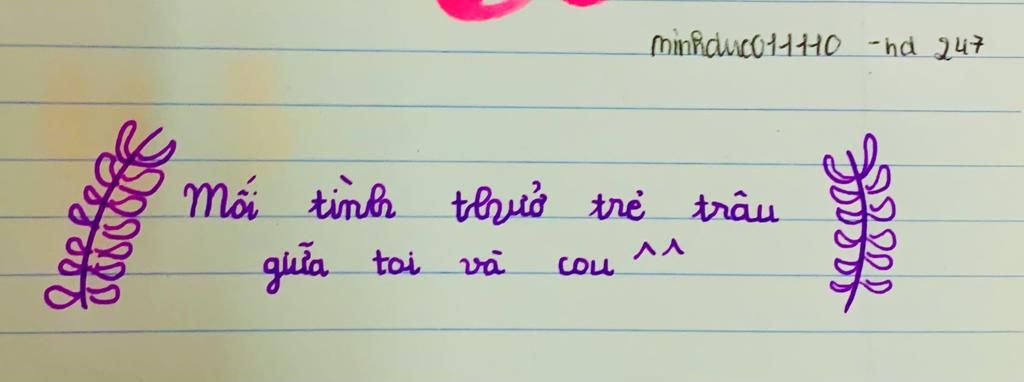 minhduc011110 -hd 247
Mối tình thuở trẻ trâu
giữa toi và cou ^^